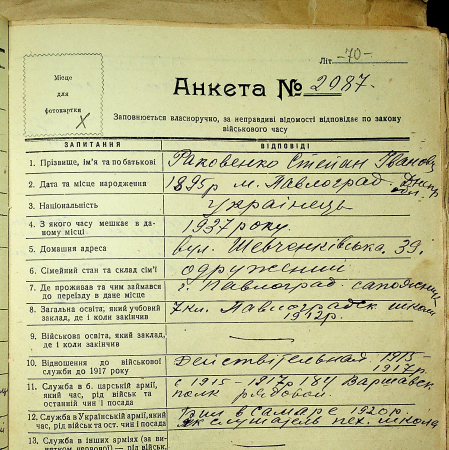 Літ -70-
Місце
для
фотокартки
Анкета № 2987.
Заповнюється власноручно, за неправдиві відомості відповідає по закону
військового часу
ЗАПИТАННЯ ВІДПОВІДІ
1. Прізвище, ім'я та по батькові Раковенко Степан Іванов
2. Дата та місце народження 1895р м. Павлоград
3. Національність українець
4. З якого часу мешкає в даному місці 1937 року.
5. Домашня адреса вул. Шевченківська. 39.
6. Сімейний стан та склад сім'ї одружений
7. Де проживав та чим займався
до переїзду в дане місце г. Павлоград
8. Загальна освіта, який учбовий
заклад, де і коли закінчив 7кл. Павлоградск школи
1912р.
9. Військова освіта, який заклад,
де і коли закінчив
10. Відношення до військової
служби до 1917 року Действітельная 1915-
1917р.
11. Служба в б. царській армії,
який час, рід військ та
останній чин і посада с 1915-1917р 184 Варшавск
полк рядовой.
12. Служба в Українській армії, який
час, рід військ та ост. чин і посада Бил в Самаре 1920р.
як слушатель пех. школа
13. Служба в інших арміях (за ви-
нятком червоної) — рід військ,